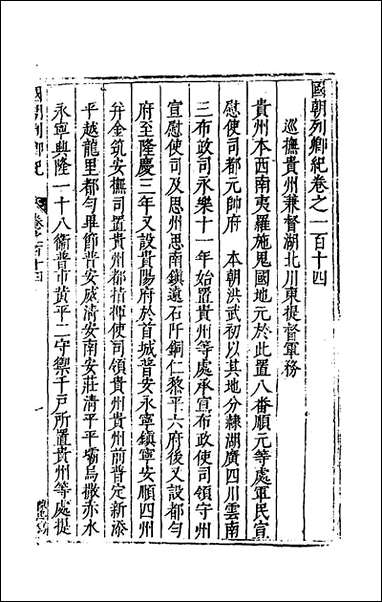 國朝列卿紀卷之一百十四
巡撫貴州兼督湖北川東提督軍務
貴州本西南夷羅施鬼國地元於此置八番順元等處軍民宣
慰使司都元帥府 本朝洪武初以其地分隸湖廣四川雲南
三布政司永樂十一年始置貴州等處承宣布政使司領守州
宣慰使司及思州思南鎮遠石阡銅仁黎平六府後又設都勻
府至隆慶三年又設貴陽府於首城普安永寧鎮寧安順四州
并金筑安撫司置貴州都指揮使司領貴州貴州前普定新添
平越龍里都勻畢節普安威清安南安莊清平平壩烏撒赤水
永寧興隆一十八衛普市黃平二守禦千戶所置貴州等處提
國朝列卿紀
卷之一百十四
一